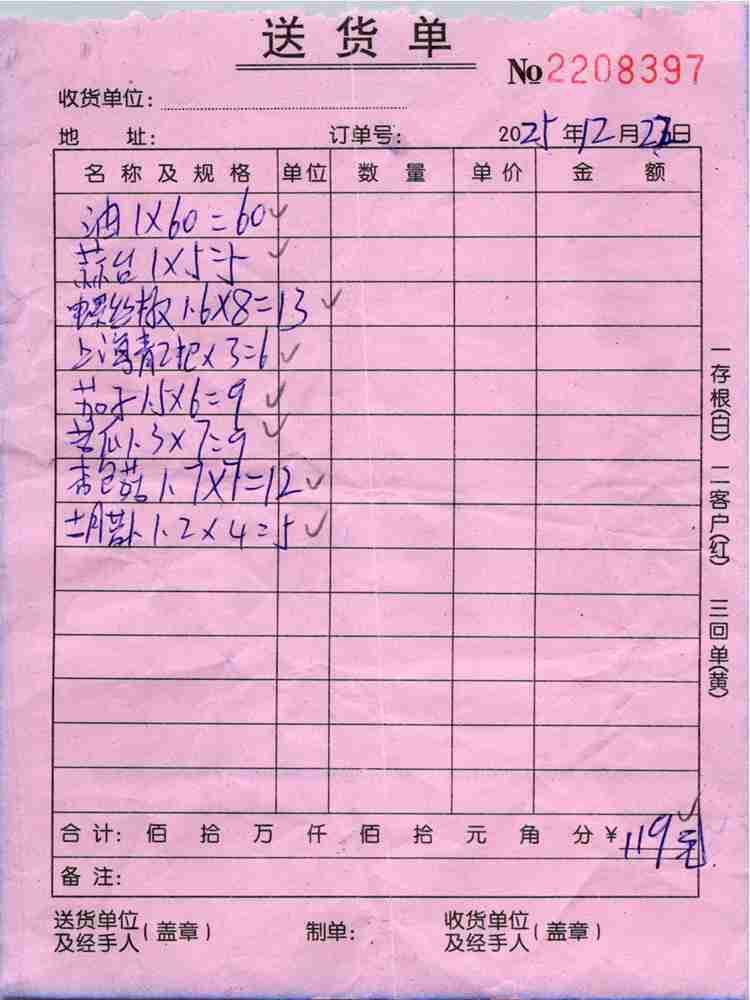 送货单
No 2208397
收货单位:
地 址: 订单号: 2025年12月23日
名称及规格 单位 数量 单价 金额
油 1×60=60 ✓
蒜台 1×5=5 ✓
螺丝椒 1.6×8=13 ✓
上海青2把×3=6 ✓
茄子1.5×6=9 ✓
苦瓜1.3×7=9 ✓
杏包菇 1.7×7=12 ✓
1.2×4=5 ✓
合计: 佰 拾 万 仟 佰 拾 元 角 分 ¥119元 ✓
备注:
送货单位及经手人(盖章) 制单: 收货单位及经手人(盖章)
一存根(白) 二客户(红) 三回单(黄)